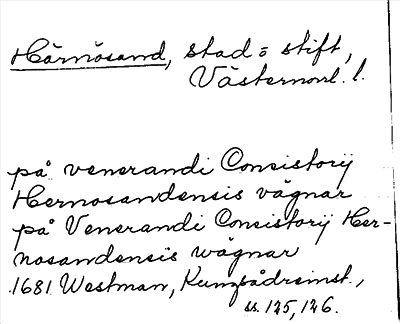 Härnösand, stad o stift,
Västernorrl. l.
på venerandi Consistorij
Hernosandensis vägnar
på Venerandi Consistorij Her-
nosandensis wägnar
1681 Westman,
ss. 125, 126.